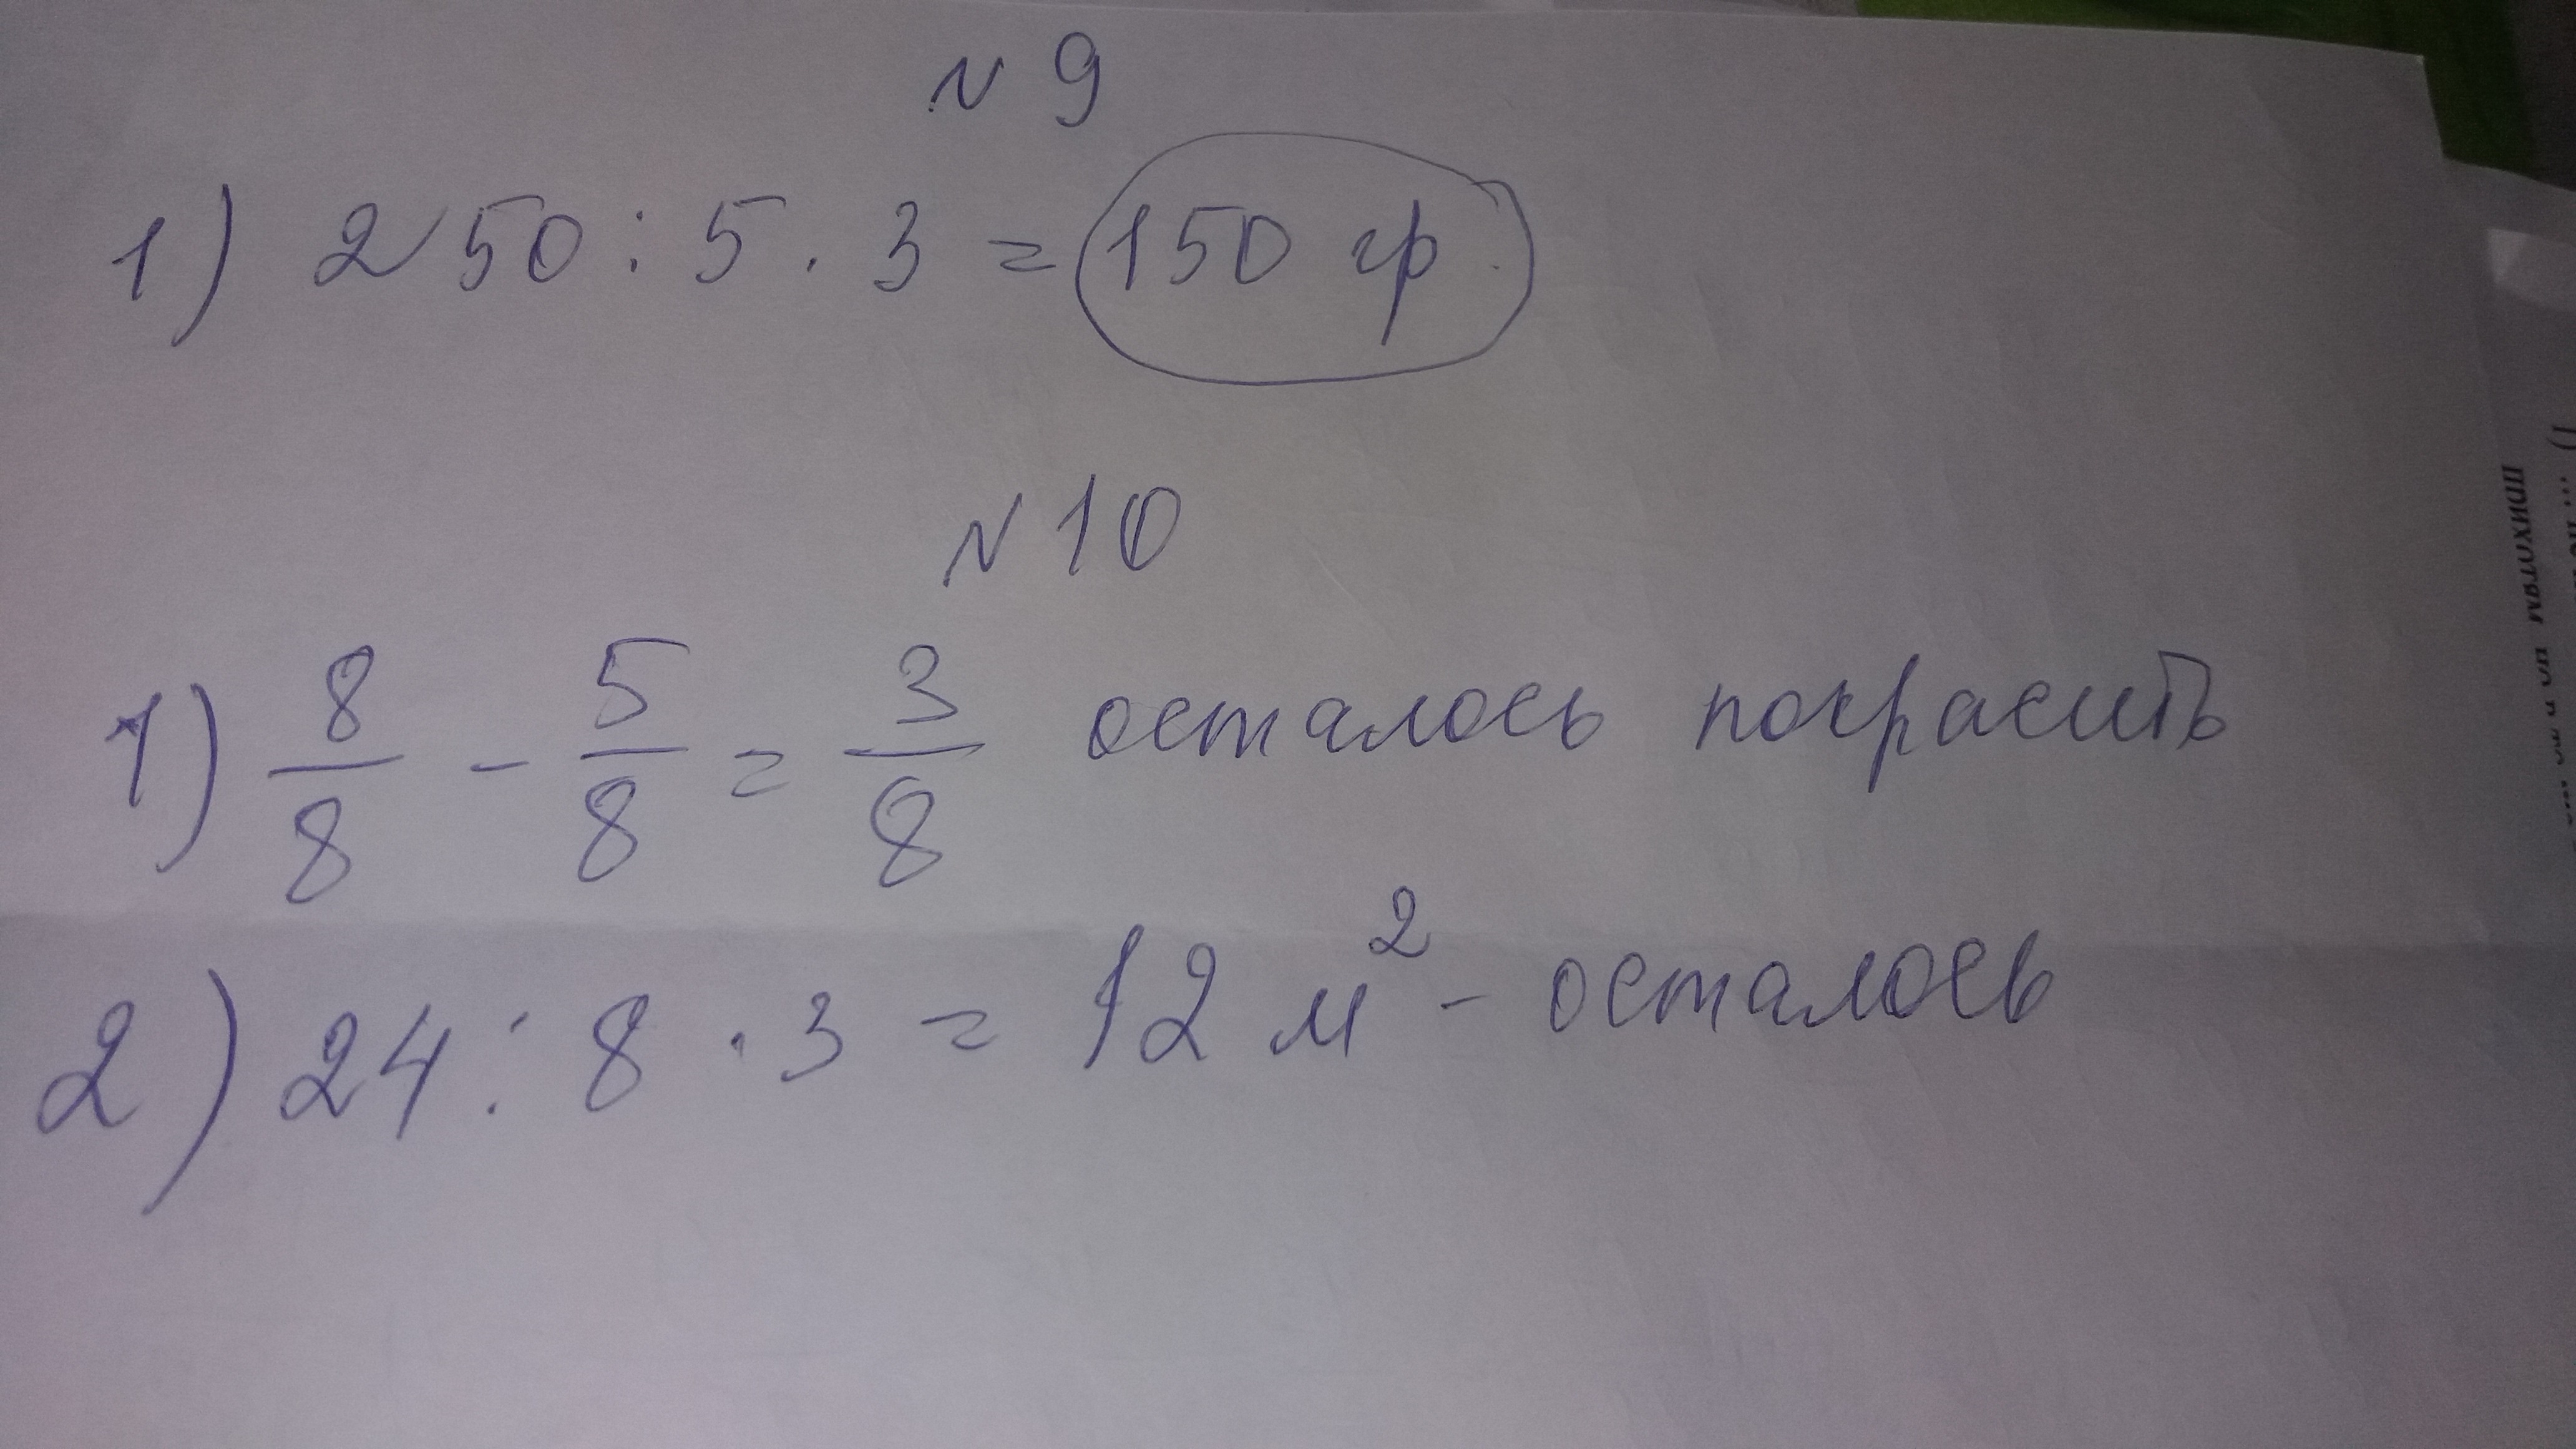 N 9
1) 250 : 5 · 3 = 150 гр.
N 10
1) 8/8 - 5/8 = 3/8 осталось покрасить
2) 24 : 8 · 3 = 12 м² - осталось